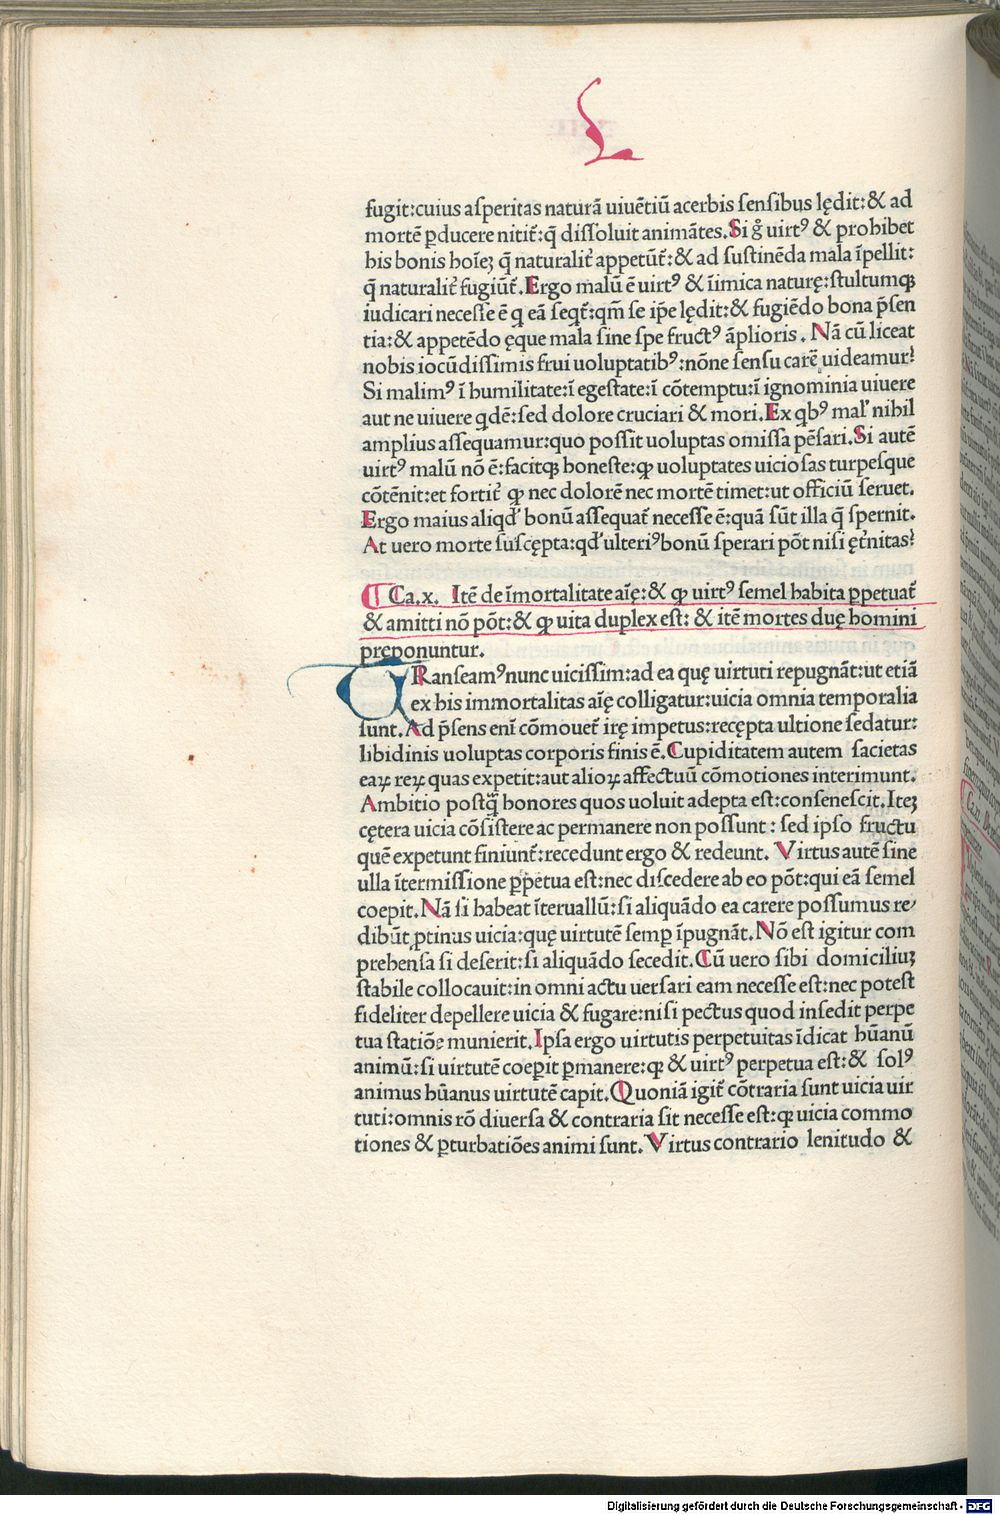 L
fugit:cuius asperitas naturā uiuētiū acerbis sensibus lędit:& ad
mortē ꝑducere nitit̃:q̄ dissoluit animātes.Si g̊ uirtꝰ & prohibet
his bonis hoīeꝫ q̄ naturalit̃ appetūt̃:& ad sustinēda mala īpellit:
q̄ naturalit̃ fugiūt̃.Ergo malū ē uirtꝰ & īimica naturę:stultumqꝫ
iudicari necesse ē q eā seqt̃:qm̄ se ip̄e lędit:& fugiēdo bona p̄sen
tia:& appetēdo ęque mala sine spe fructꝰ āplioris. Nā cū liceat
nobis iocūdissimis frui uoluptatibꝰ:nōne sensu carē uideamur?
Si malimꝰ ī humilitate:ī egestate:ī cōtemptu:ī ignominia uiuere
aut ne uiuere qdē:sed dolore cruciari & mori.Ex qbꝰ mal' nihil
amplius assequamur:quo possit uoluptas omissa pēsari.Si autē
uirtꝰ malū nō ē:facitqꝫ honeste:ꝙ uoluptates uiciosas turpesque
cōtēnit:et fortit̃ ꝙ nec dolorē nec mortē timet:ut officiū seruet.
Ergo maius aliqd' bonū assequat̃ necesse ē:quā sūt illa q̄ spernit.
At uero morte suscępta:qd'ulteriꝰbonū sperari pōt nisi ęt̃nitas?
Ca.x. Itē de īmortalitate aīę:& ꝙ uirtꝰ semel habita ꝑpetuat̃
& amitti nō pōt:& ꝙ uita duplex est: & itē mortes duę homini
preponuntur.
TRanseamꝰnunc uicissim:ad ea quę uirtuti repugnāt:ut etiā
ex his immortalitas aīę colligatur:uicia omnia temporalia
sunt.Ad p̄sens enī cōmouet̃ irę impetus:recępta ultione sedatur:
libidinis uoluptas corporis finis ē.Cupiditatem autem sacietas
eaꝝ reꝝ quas expetit:aut alioꝝ affectuū cōmotiones interimunt.
Ambitio postq̄ honores quos uoluit adepta est:consenescit.Iteꝫ
cętera uicia cōsistere ac permanere non possunt: sed ipso fructu
quē expetunt finiunt̃:recedunt ergo & redeunt. Virtus autē sine
ulla ītermissione ꝑpetua est:nec discedere ab eo pōt:qui eā semel
coepit.Nā si habeat īteruallū:si aliquādo ea carere possumus re
dibūt ꝓtinus uicia:quę uirtutē semꝑ īpugnāt.Nō est igitur com
prehensa si deserit:si aliquādo secedit.Cū uero sibi domiciliuꝫ
stabile collocauit:in omni actu uersari eam necesse est:nec potest
fideliter depellere uicia & fugare:nisi pectus quod insedit perpe
tua statiōe munierit.Ipsa ergo uirtutis perpetuitas īdicat hūanū
animū:si uirtutē coeꝑit ꝑmanere:qꝫ & uirtꝰ perpetua est:& solꝰ
animus hūanus uirtutē capit.Quoniā igit̃ cōtraria sunt uicia uir
tuti:omnis rō diuersa & contraria sit necesse est:qꝫ uicia commo
tiones & ꝑturbatiōes animi sunt.Virtus contrario lenitudo &
Digitalisierung gefördert durch die Deutsche Forschungsgemeinschaft - DFG